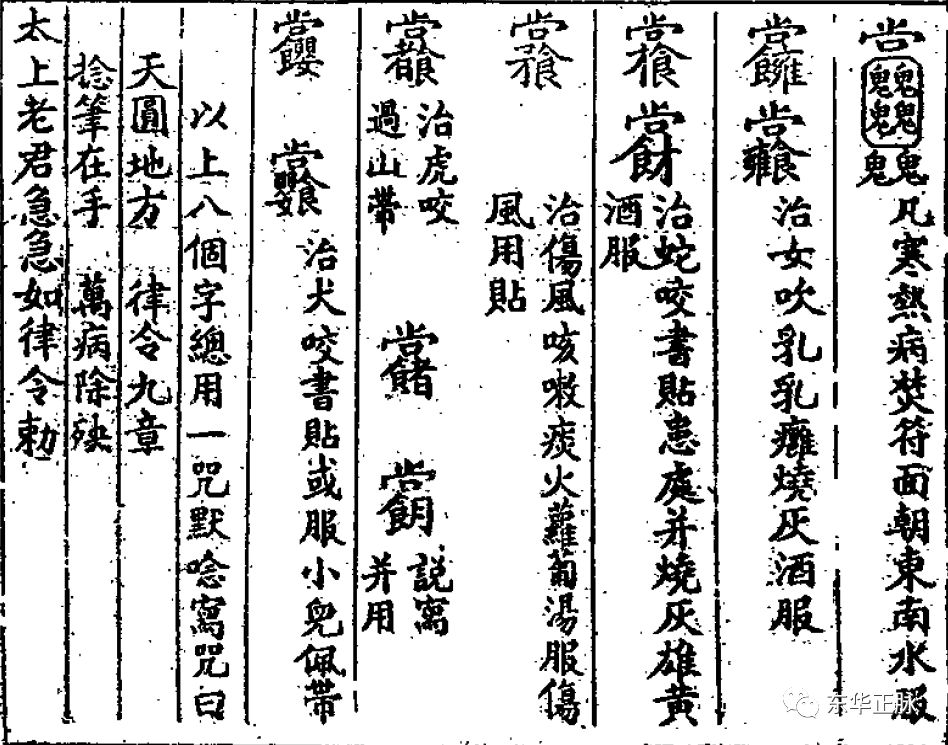 凡寒熱病焚符面朝東南水服
治女吹乳乳癰燒灰酒服
治蛇咬書貼患處并燒灰雄黃
酒服
治傷風咳嗽痰火蘿蔔湯服傷
風用貼
治虎咬
過山帶
説寫
并用
治犬咬書貼或服小兒佩帶
以上八個字總用一咒默唸寫咒曰
天圓地方 律令九章
捻筆在手 萬病除殃
太上老君急急如律令勅
东华正脉